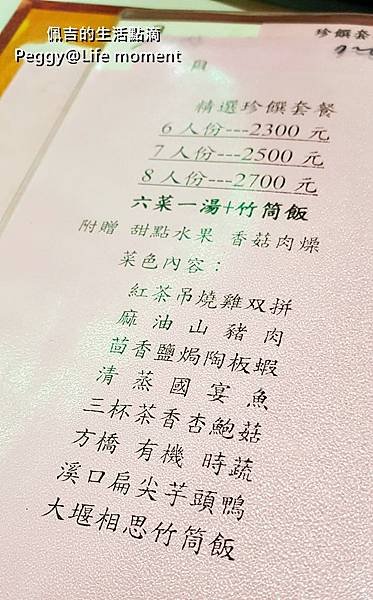 佩吉的生活點滴
Peggy@Life moment
珍饌套
精選珍饌套餐
6人份---2300 元
7人份---2500 元
8人份---2700 元
六菜一湯+竹筒飯
附贈 甜點水果 香菇肉燥
菜色內容：
紅茶吊燒雞双拼
麻油山豬肉
茴香鹽焗陶板蝦
清蒸國宴魚
三杯茶香杏鮑菇
方橋 有機 時蔬
溪口扁尖芋頭鴨
大堰相思竹筒飯